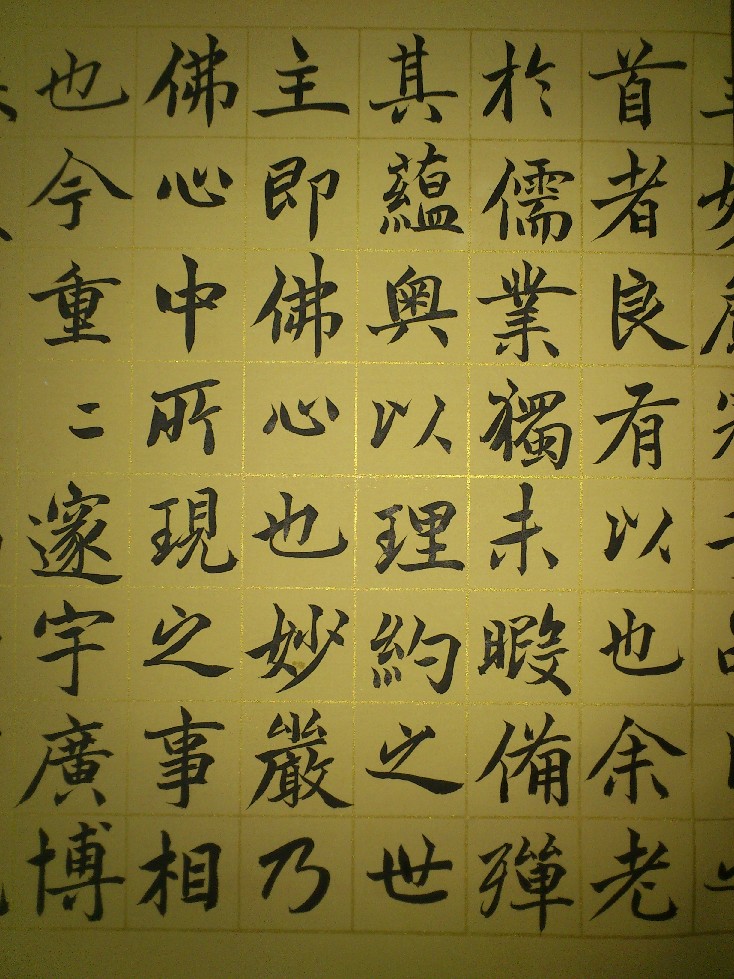 首者良有以也余老
於儒業獨未暇備殫
其蘊奧以理約之世
主即佛心也妙嚴乃
佛心中所現之事相
也今重二邃宇廣博